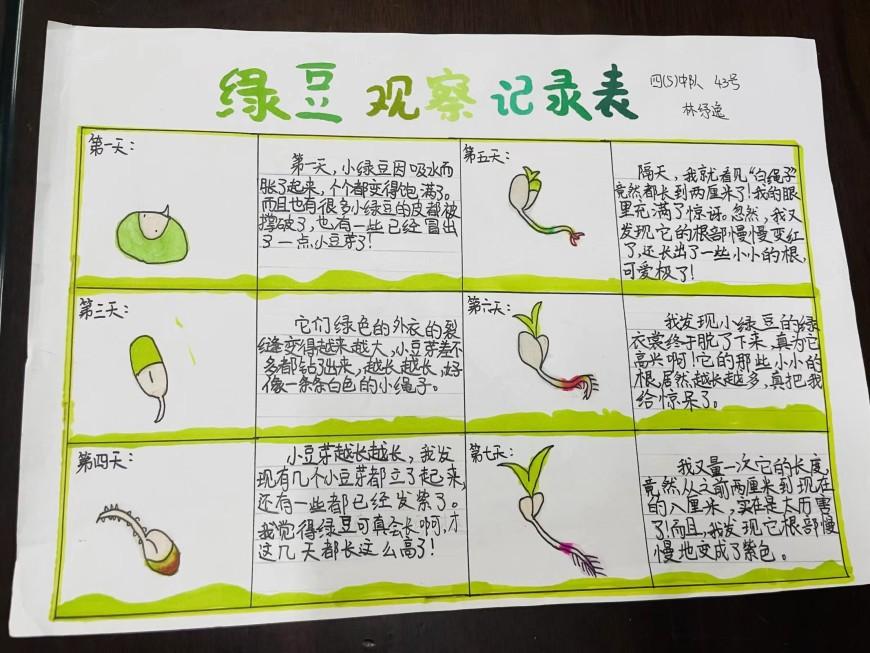 绿豆观察记录表
四(5)中队 43号
林纾逸
第一天：
第一天，小绿豆因吸水而
胀了起来，个个都变得饱满了。
而且也有很多小绿豆的皮都被
撑破了，也有一些已经冒出
了一点小豆芽了！
第三天：
它们绿色的外衣的裂
缝变得越来越大，小豆芽差不
多都钻了出来，越长越长，好
像一条条白色的小绳子。
第四天：
小豆芽越长越长，我发
现有几个小豆芽都立了起来，
还有一些都已经发紫了。
我觉得绿豆可真会长啊，才
这几天都长这么高了！
第五天：
隔天，我就看见“白绳子”
竟然都长到两厘米了！我的眼
里充满了惊讶。忽然，我又
发现它的根部慢慢变红
了，还长出了一些小小的根，
可爱极了！
第六天：
我发现小绿豆的绿
衣裳终于脱了下来，真为它
高兴啊！它的那些小小的
根，居然越长越多，真把我
给惊呆了。
第七天：
我又量一次它的长度，
竟然从之前两厘米到现在
的八厘米，实在是太厉害
了！而且，我发现它根部慢
慢地变成了紫色。